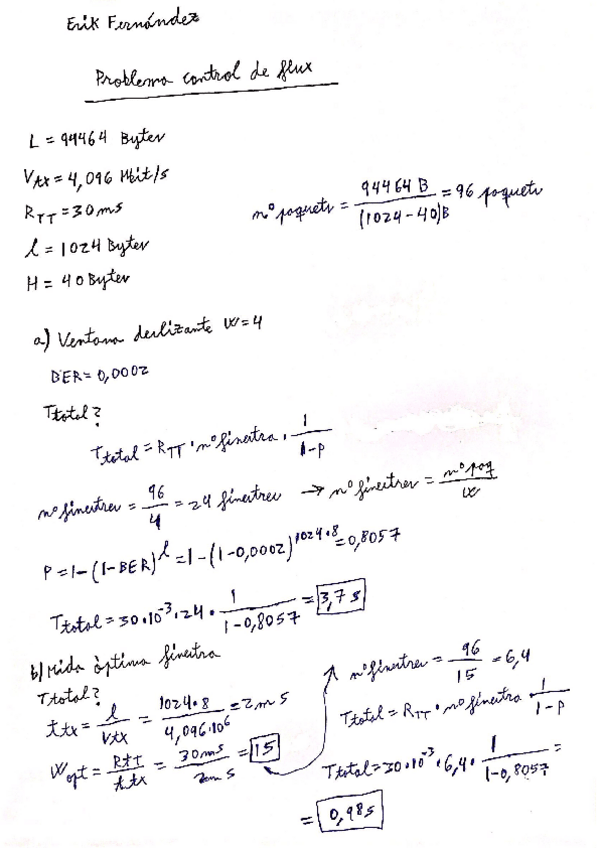 Erik Fernández
Problema control de flux
L = 94464 Bytes
Vtx = 4,096 Mbit/s
RTT = 30 ms
l = 1024 Bytes
H = 40 Bytes
nº paquets = 94464 B / (1024-40)B = 96 paquets
a) Ventana deslizante W=4
BER = 0,0002
Ttotal?
Ttotal = RTT · nº finestra · 1/(1-P)
nº finestres = 96/4 = 24 finestres → nº finestres = nº paq/W
P = 1-(1-BER)^l = 1-(1-0,0002)^1024·8 = 0,8057
Ttotal = 30·10^-3·24· 1/(1-0,8057) = 3,7 s
b) Mida òptima finestra
Ttotal?
ttx = l/Vtx = 1024·8/4,096·10^6 = 2 ms
Wopt = RTT/ttx = 30ms/2ms = 15
nº finestres = 96/15 = 6,4
Ttotal = RTT · nº finestra · 1/(1-P)
Ttotal = 30·10^-3 · 6,4 · 1/(1-0,8057) =
= 0,98s